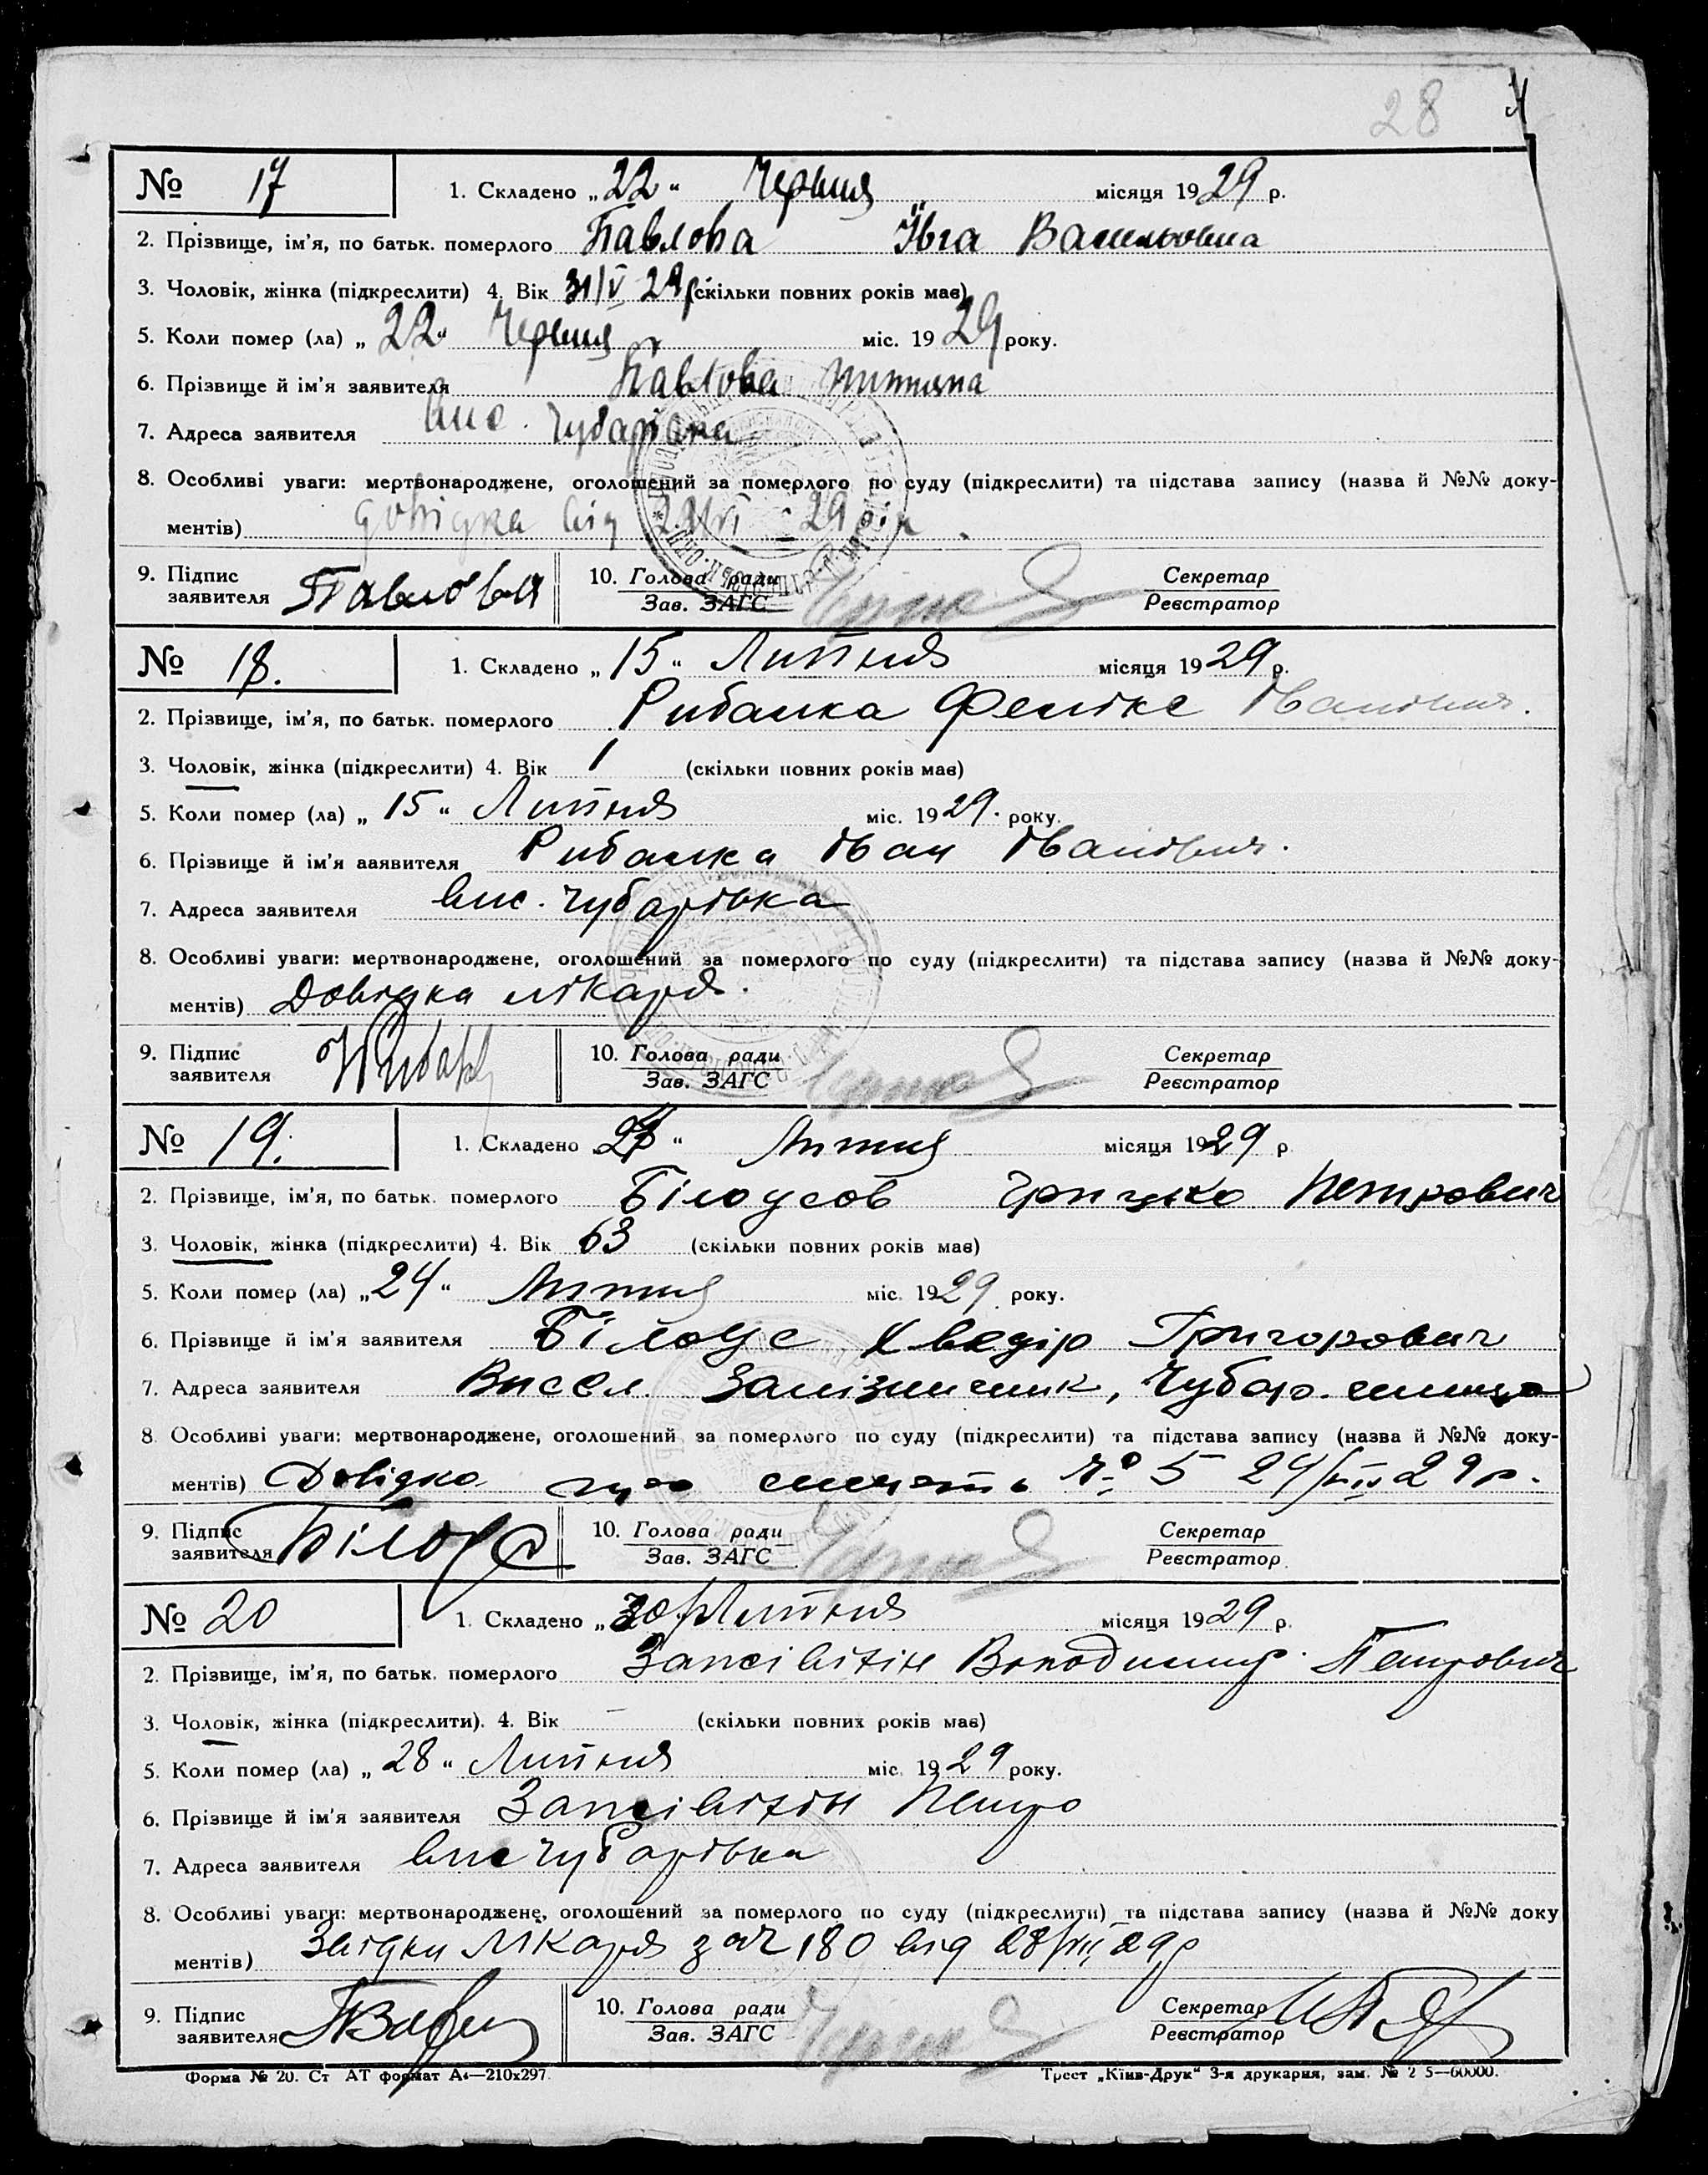 28
№ 17 1. Складено „22“ Червня місяця 1929 р.
2. Прізвище, ім'я, по батьк. померлого Павлова Ївга Васильовна
3. Чоловік, жінка (підкреслити) 4. Вік 31/V 29 р (скільки повних років має)
5. Коли помер (ла) „22“ Червня міс. 1929 року.
6. Прізвище й ім'я заявителя Павлова
7. Адреса заявителя вис. Чубарівка
8. Особливі уваги: мертвонароджене, оголошений за померлого по суду (підкреслити) та підстава запису (назва й №№ доку-
ментів) довідка від 22/VI 29 р.
9. Підпис заявителя Павлова 10. Голова ради Зав. ЗАГС Секретар Реєстратор
№ 18. 1. Складено „15“ Липня місяця 1929 р.
2. Прізвище, ім'я, по батьк. померлого Рибалка Фелікс Іванович.
3. Чоловік, жінка (підкреслити) 4. Вік 1 (скільки повних років має)
5. Коли помер (ла) „15“ Липня міс. 1929. року.
6. Прізвище й ім'я заявителя Рибалка Іван Іванович.
7. Адреса заявителя вис. Чубарівка
8. Особливі уваги: мертвонароджене, оголошений за померлого по суду (підкреслити) та підстава запису (назва й №№ доку-
ментів) Довідка лікаря.
9. Підпис заявителя 10. Голова ради Зав. ЗАГС Секретар Реєстратор
№ 19. 1. Складено “ Липня місяця 1929 р
2. Прізвище, ім'я, по батьк. померлого Білоусов Грицько Петрович
3. Чоловік, жінка (підкреслити) 4. Вік 63 (скільки повних років має)
5. Коли помер (ла) „24“ Липня міс. 1929 року.
6. Прізвище й ім'я заявителя Білоус Хведір Григорович
7. Адреса заявителя Висел. Залізничник, Чубар.
8. Особливі уваги: мертвонароджене, оголошений за померлого по суду (підкреслити) та підстава запису (назва й №№ доку-
ментів) Довідка про смерть № 5 24/VII 29 р.
9. Підпис заявителя Білоус 10. Голова ради Зав. ЗАГС Секретар Реєстратор
№ 20 1. Складено „30“ Липня місяця 1929 р.
2. Прізвище, ім'я, по батьк. померлого Володимир Петрович
3. Чоловік, жінка (підкреслити). 4. Вік — (скільки повних років має)
5. Коли помер (ла) „28“ Липня міс. 1929 року.
6. Прізвище й ім'я заявителя Петро
7. Адреса заявителя вис Чубарівка
8. Особливі уваги: мертвонароджене, оголошений за померлого по суду (підкреслити) та підстава запису (назва й №№ доку
ментів) лікаря за № 180 від 28/VII 29 р
9. Підпис заявителя 10. Голова ради Зав. ЗАГС Секретар Реєстратор
Форма № 20. Ст АТ формат А4—210х297. Трест „Київ-Друк“ 3-я друкарня, зам. № 2 5—60000.